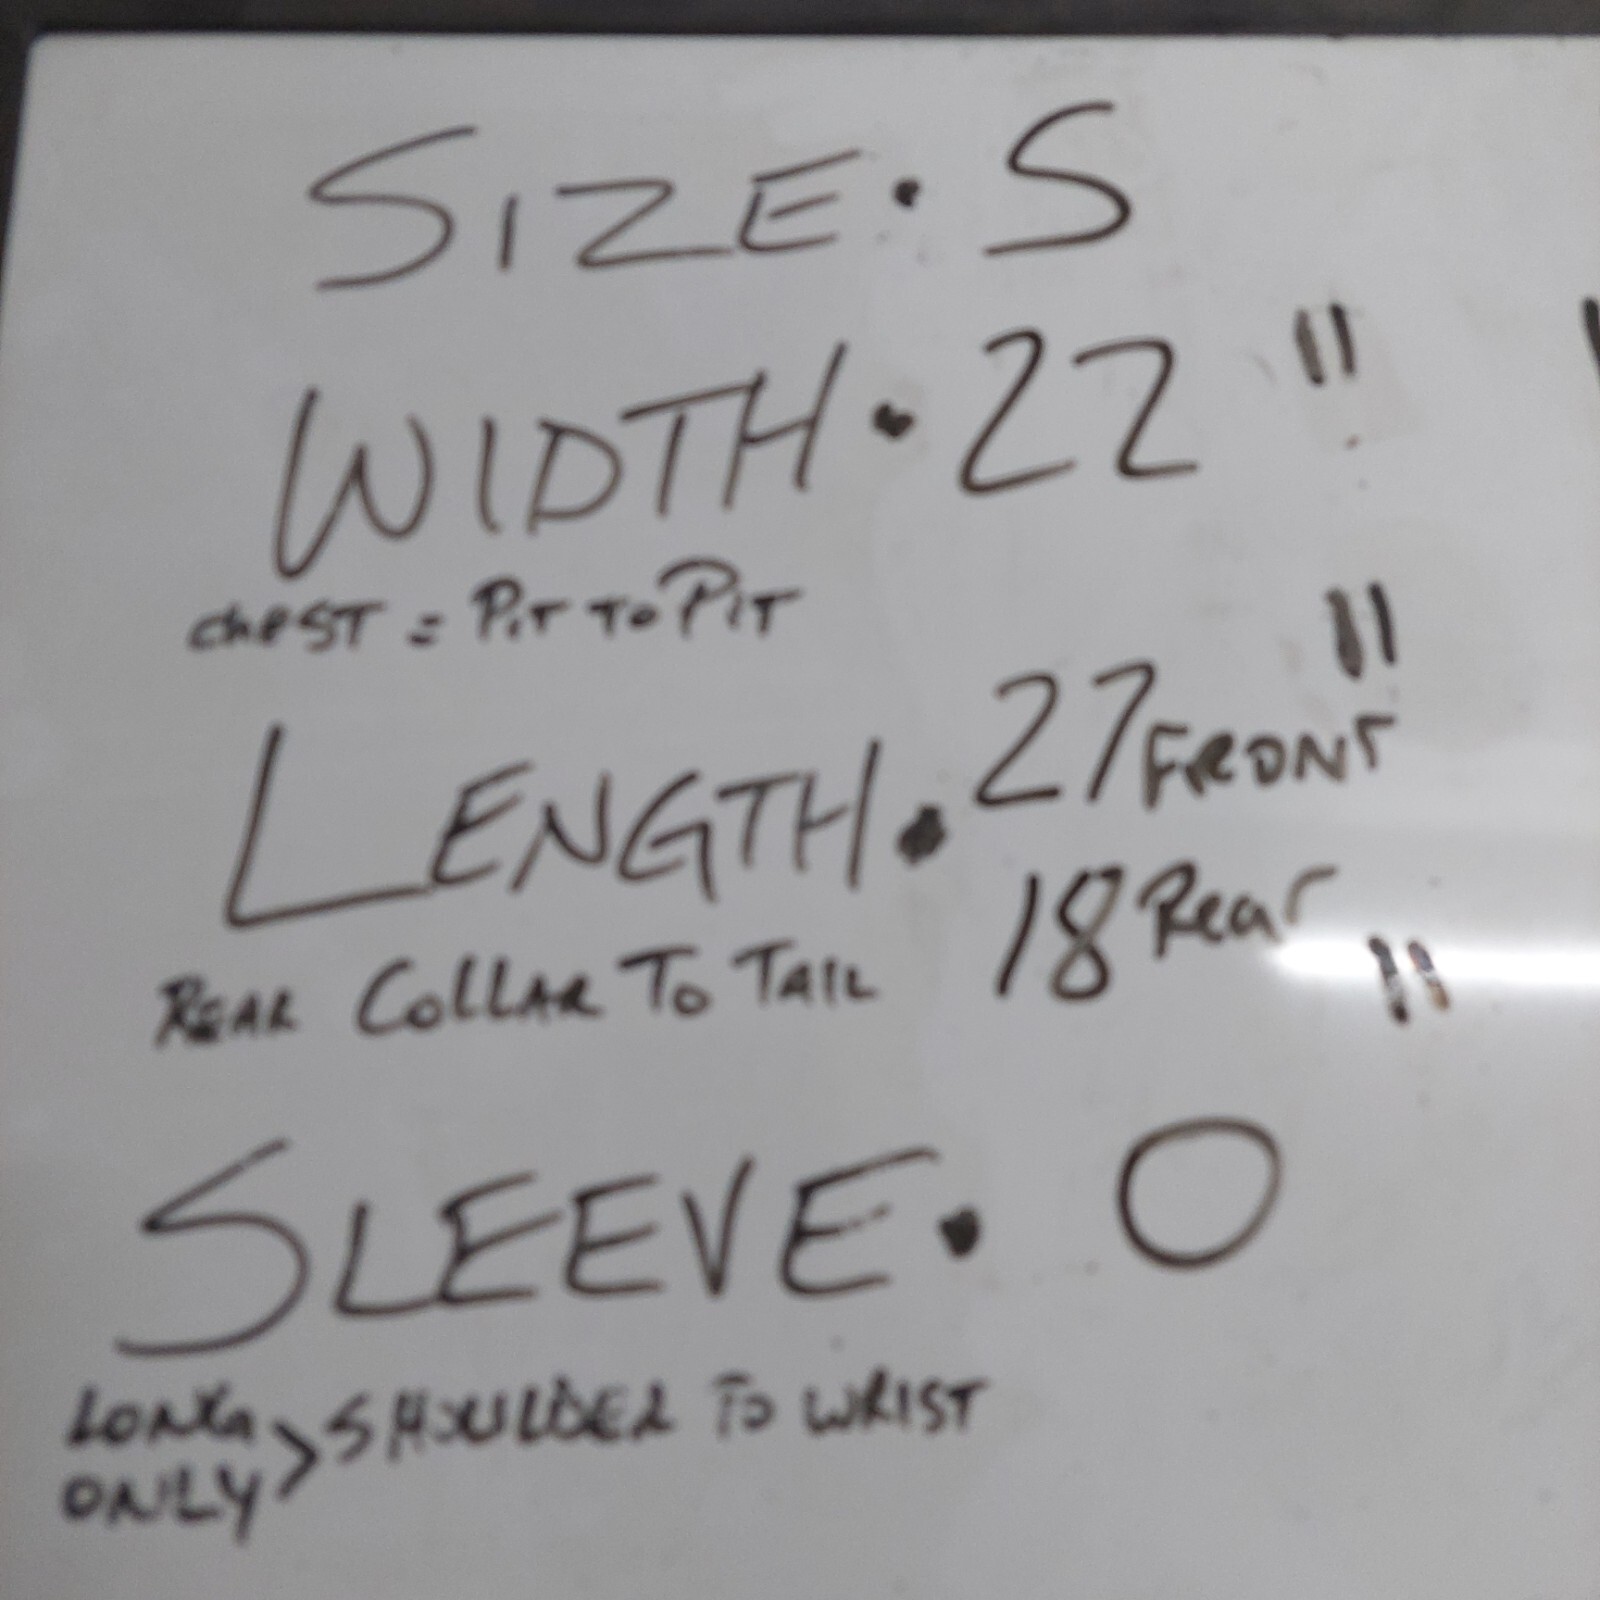 SIZE • S
WIDTH • 22 "
chEST = PIT TO PIT
LENGTH • 27 FRONT "
18 Rear "
REAR COLLAR TO TAIL
SLEEVE • O
LONG ONLY > SHOULDER TO WRIST